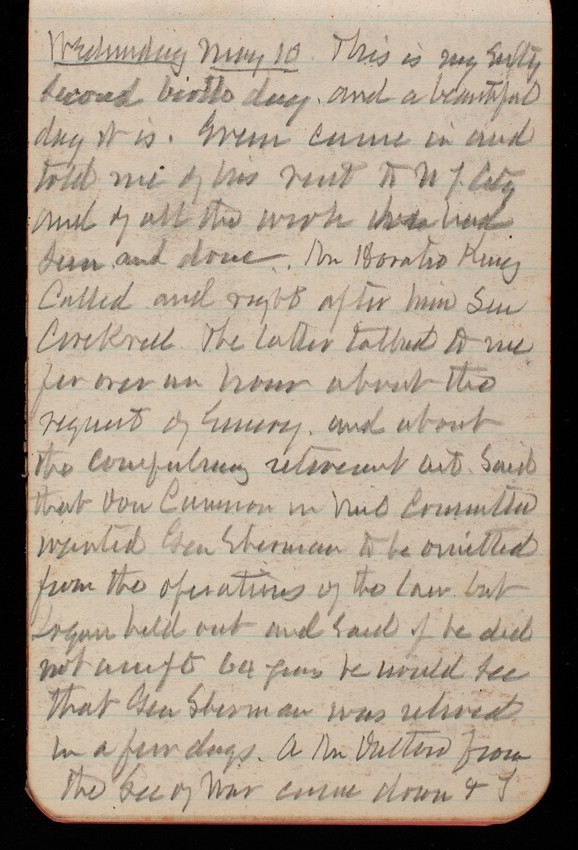 Wednesday May 10 This is my fifty
second birth day. and a beautiful
day it is. Green came in and
told me of his visit to N. J. City
and of all the work he had
seen and done. Mr Horatio King
Called and right after him Sen
Cockrell. The latter talked to me
for over an hour about the
request of Emory. and about
the compulsory retirement act. Said
that Don Cameron in Mil Committee
wanted Gen Sherman to be omitted
from the operations of the law. but
Logan held out and said if he did
not accept 64 years he would see
that Gen Sherman was retired
in a few days. A Mr from
the Sec of War came down & I